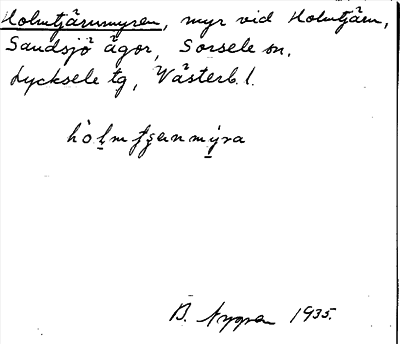 Holmtjärnmyren, myr vid Holmtjärn,
Sandsjö ägor, Sorsele sn,
Lycksele tg, Västerb. l.
B. Nygren 1935.